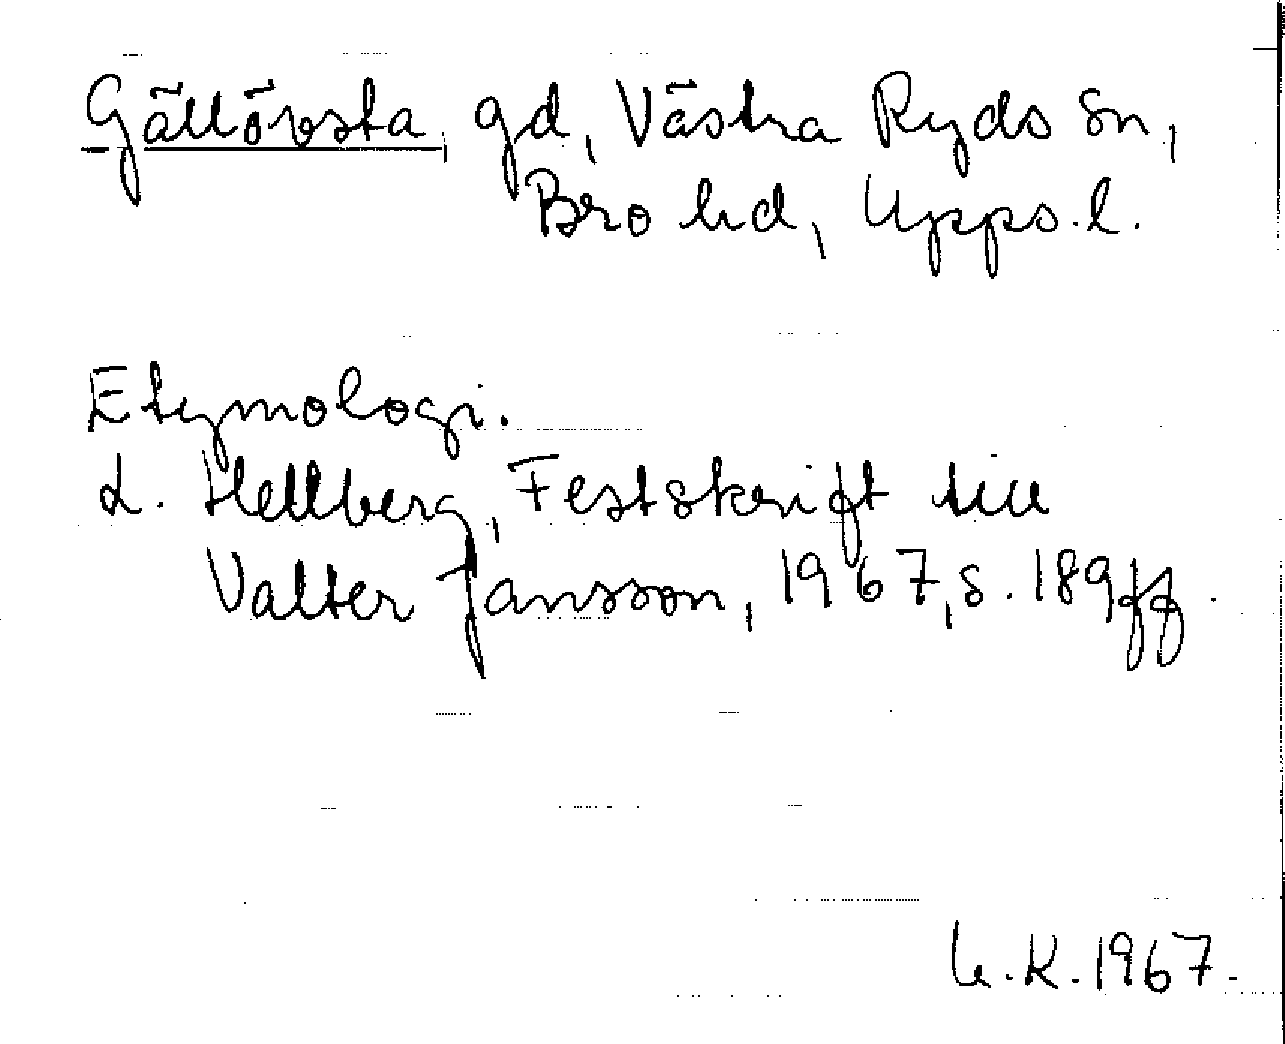 Gällövsta, gd, Västra Ryds sn,
Bro hd, Upps. l.
Etymologi.
L. Hellberg, Festskrift till
Valter Jansson, 1967, s. 189 ff.
K. 1967.